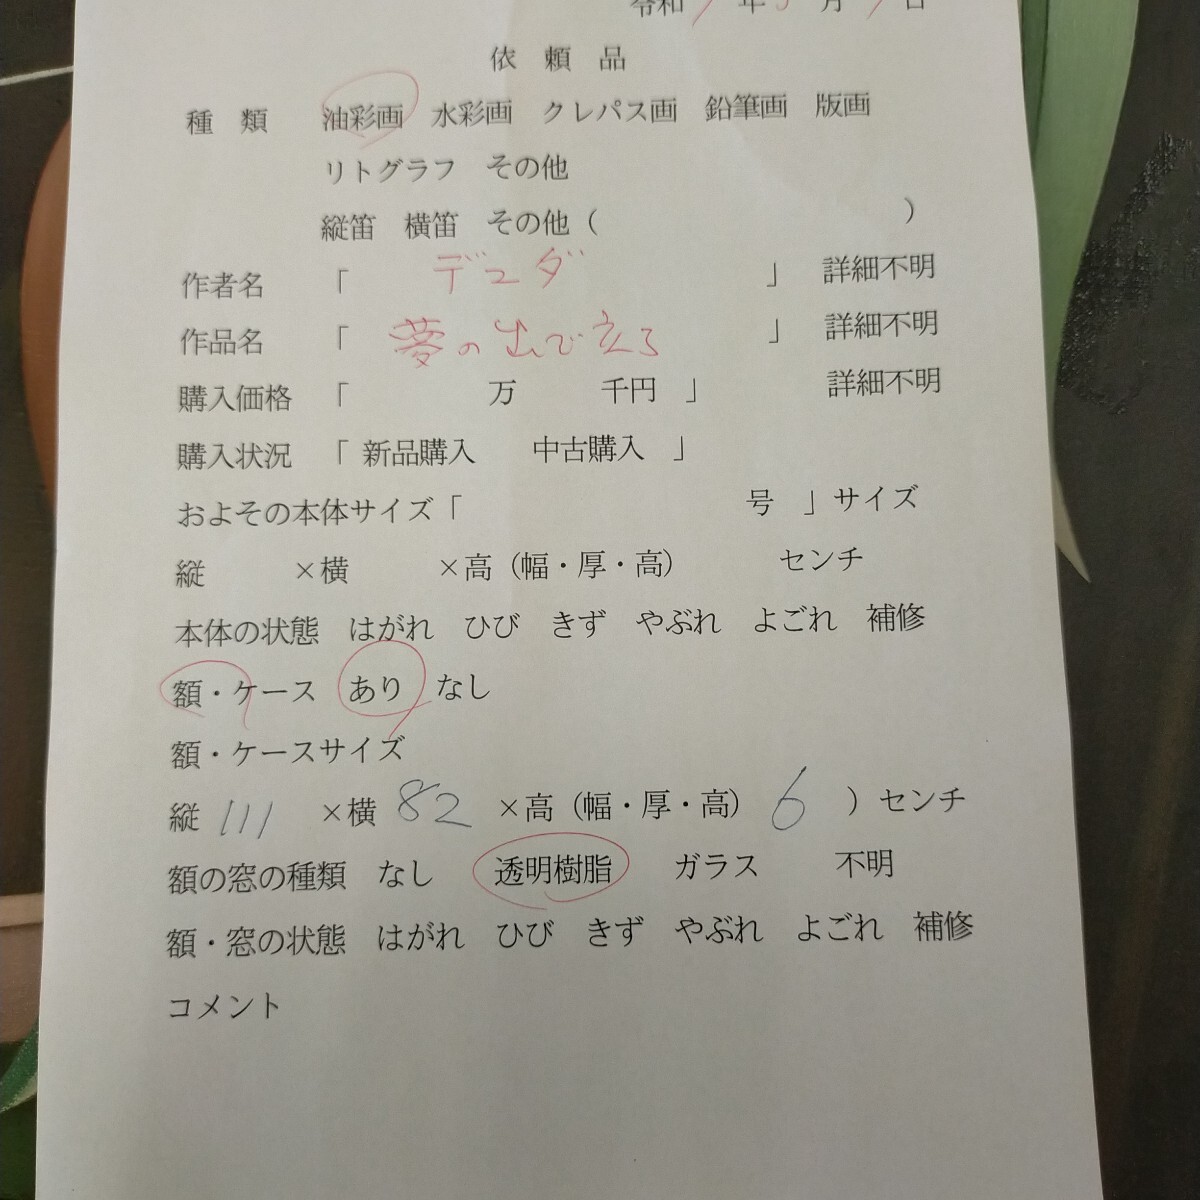 令和 年 月 日
依頼品
種類 油彩画 水彩画 クレパス画 鉛筆画 版画
リトグラフ その他
縦笛 横笛 その他（ ）
作者名 「 デユダ 」 詳細不明
作品名 「 夢の出で立る 」 詳細不明
購入価格 「 万 千円 」 詳細不明
購入状況 「 新品購入 中古購入 」
およその本体サイズ「 号 」サイズ
縦 ×横 ×高（幅・厚・高） センチ
本体の状態 はがれ ひび きず やぶれ よごれ 補修
額・ケース あり なし
額・ケースサイズ
縦 111 ×横 82 ×高（幅・厚・高） 6 ）センチ
額の窓の種類 なし 透明樹脂 ガラス 不明
額・窓の状態 はがれ ひび きず やぶれ よごれ 補修
コメント